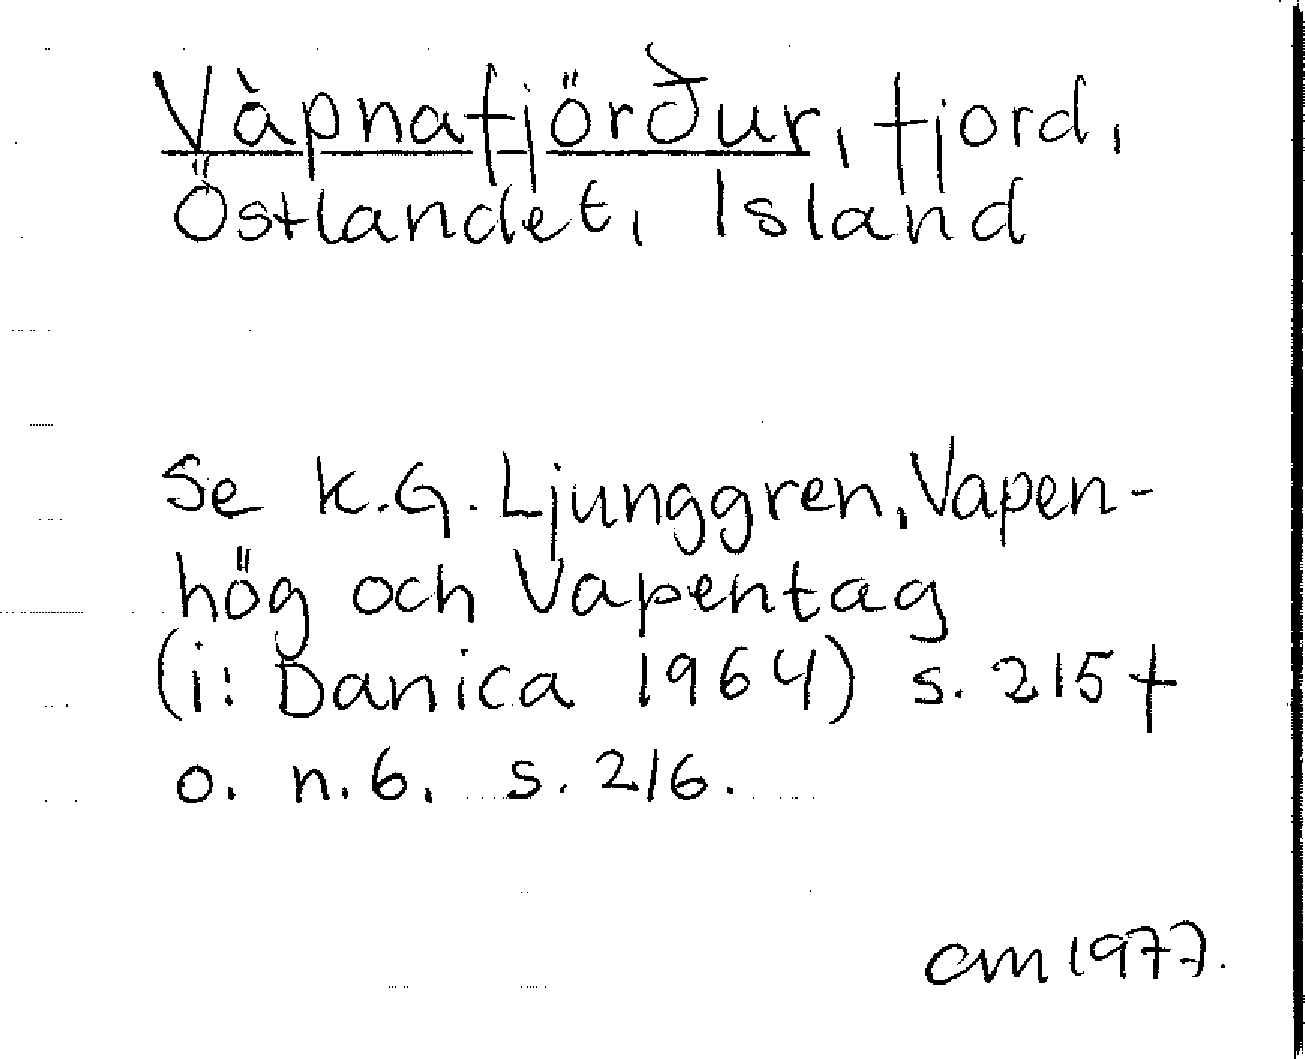 Vàpnafjörður, fjord,
Östlandet, Island
Se K.G. Ljunggren, Vapen-
hög och Vapentag
(i: Danica 1964) s. 215f
o. n. 6. s. 216.
cm 1977.